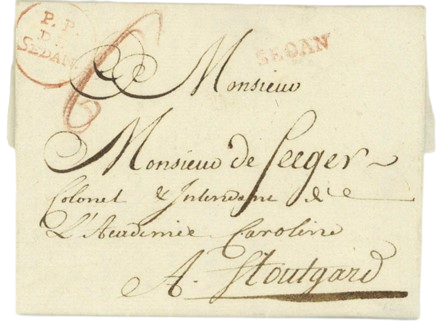 P. P.
D. 
SEDAN
SEDAN
Monsieur
Monsieur de Seeger
Colonel & Intendant de
L'Academie Caroline
A. Stoutgard